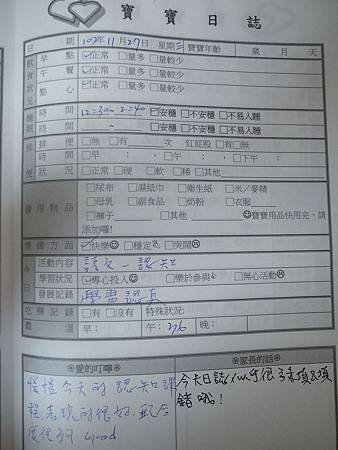 寶寶日誌
日期 102年11月27日 星期三 寶寶年齡 歲 月 天
飲食狀況 早點 ☑正常 □量多 □量較少
午餐 ☑正常 □量多 □量較少
點心 ☑正常 □量多 □量較少
時間 12:30-2:40 ☑安穩 □不安穩 □不易入睡
時間 □安穩 □不安穩 □不易入睡
排便 □無 □有 次 紅屁股 □有□無
時間 □早: □午: □下午:
狀況 □正常 □硬 □軟 □稀 □其他
備用物品 □尿布 □濕紙巾 □衛生紙 □米/麥精
□母乳 □副食品 □奶粉 □衣服
□褲子 □其他 ☺寶寶用品快用完,請
添加喔!
情緒方面 ☑快樂☺ □穩定 □哭鬧☹
活動內容 語文-認知
學習狀況 ☑專心投入☺ □樂於參與 □無心活動☹
發展記錄 學習認真
吃藥記錄 □有 □沒有 特殊狀況:
體溫 早: 午: 晚:
愛的叮嚀
愷愷今天的認知課
程,表現的很好,配合
度很 Good
家長的話
今天日誌
錯哦!